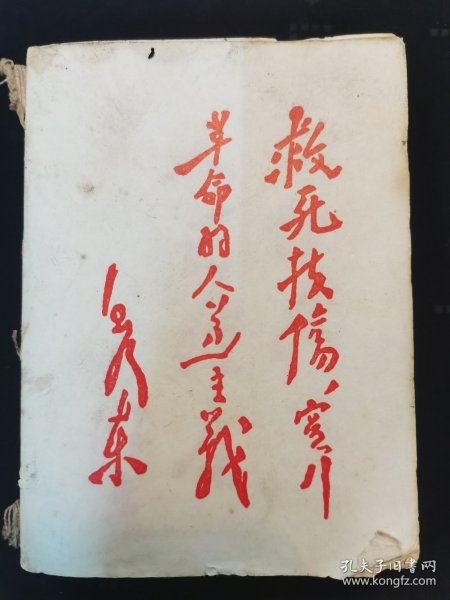 救死扶傷、实行
革命的人道主義
毛泽东
孔夫子旧书网
www.kongfz.com